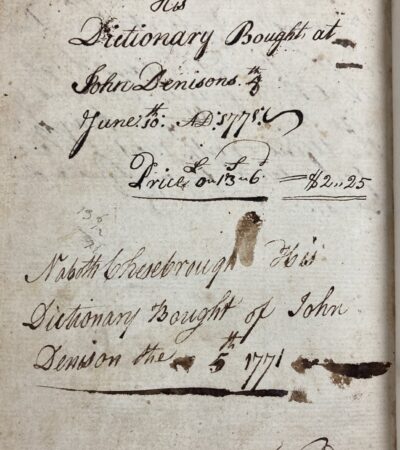 His
Dictionary Bought at
John Denisons 4th
June 10th: AD: 1771
Price £0 " 13S " 6d = $2 " 25
Naboth Chesebrough His
Dictionary Bought of John
Denison the 5th 1771